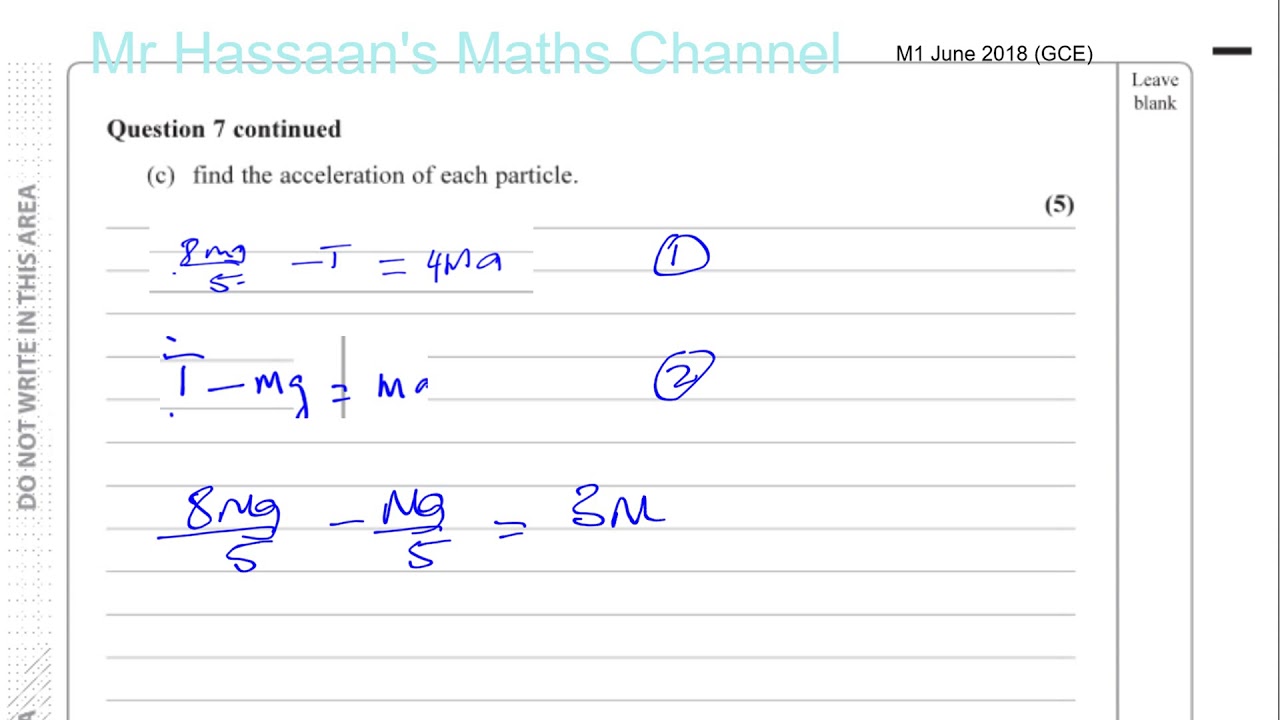 Mr Hassaan's Maths Channel
M1 June 2018 (GCE)
Leave
blank
Question 7 continued
(c) find the acceleration of each particle.
(5)
8mg/5 - T = 4Ma ①
T - Mg = Ma ②
8Mg/5 - Mg/5 = 3M
DO NOT WRITE IN THIS AREA
A